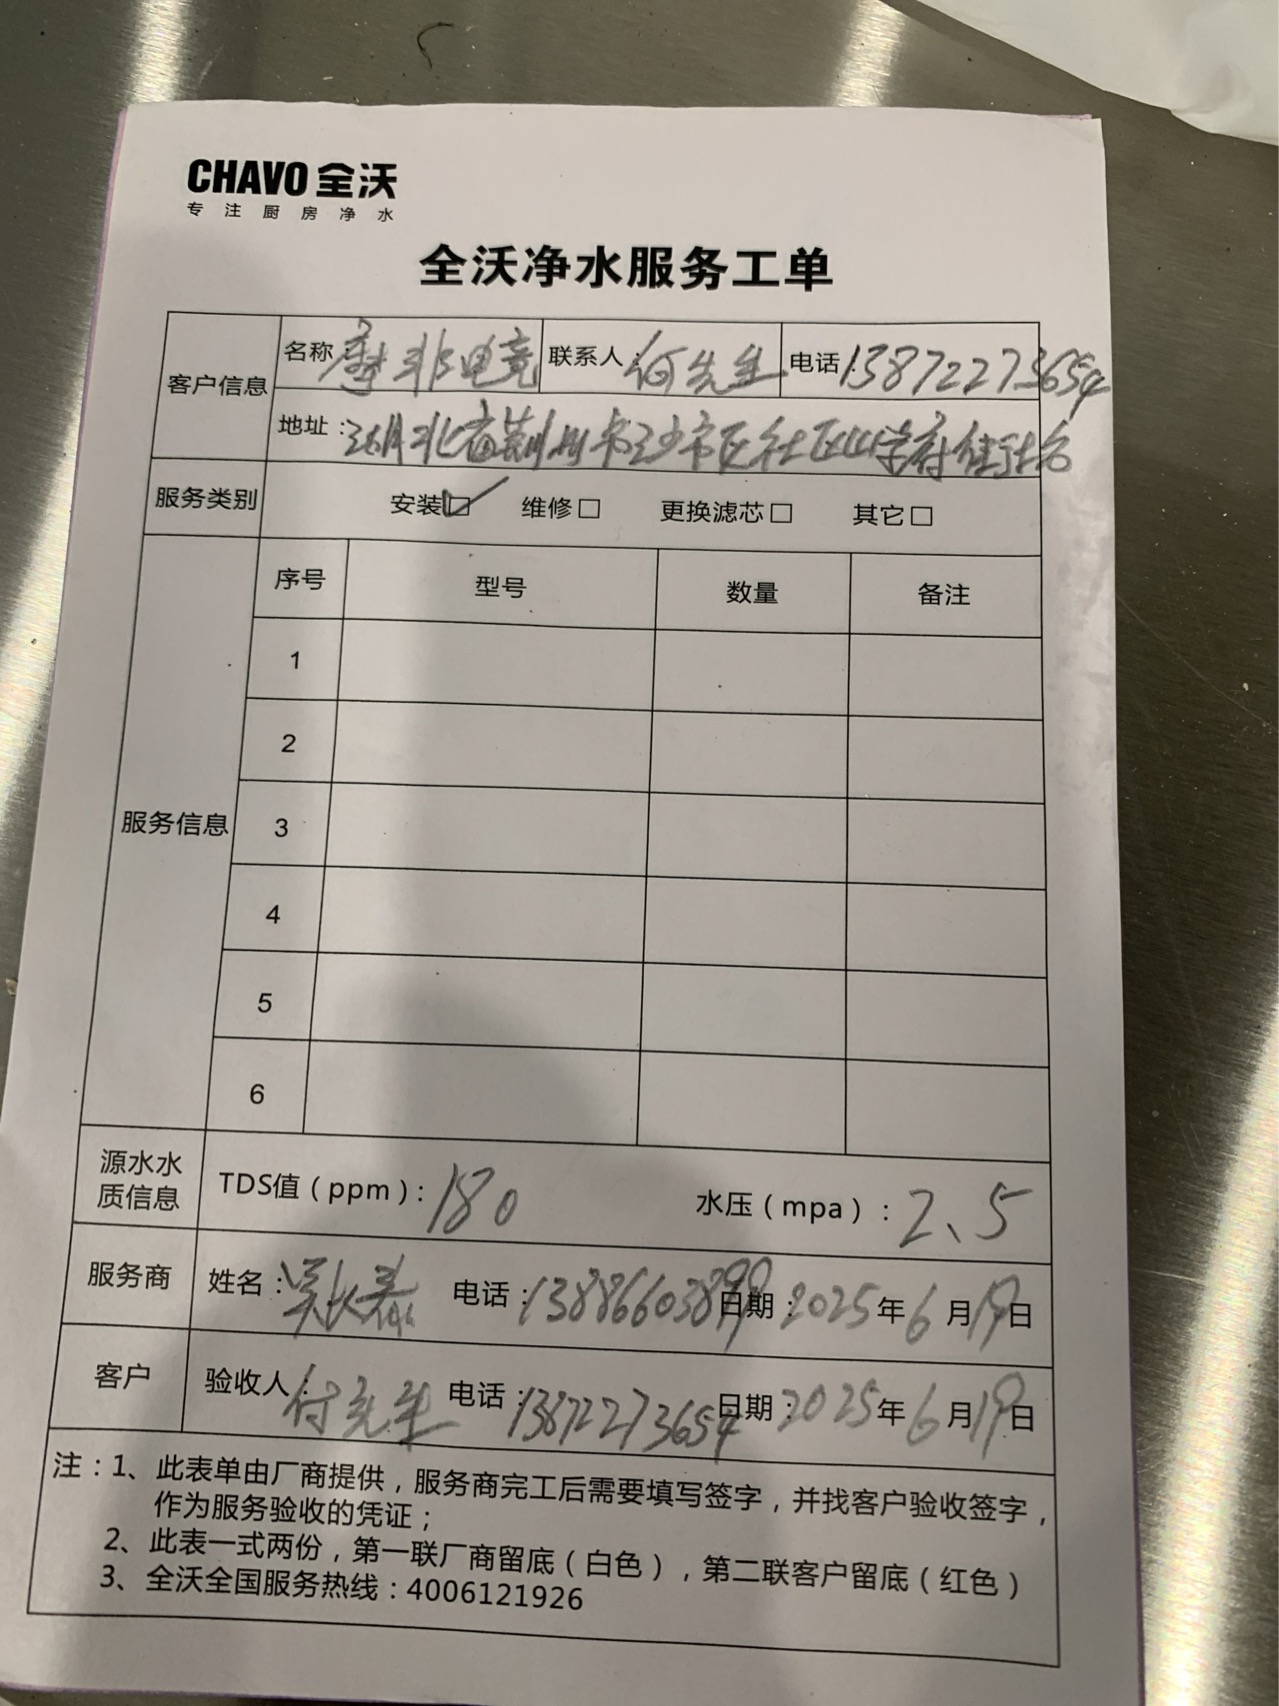 CHAVO 全沃
专注厨房净水
全沃净水服务工单
客户信息 名称：摩非电竞 联系人：何先生 电话：13872273654
地址：湖北省荆州市沙市区社区学府佳
服务类别 安装☑ 维修□ 更换滤芯□ 其它□
服务信息 序号 型号 数量 备注
1
2
3
4
5
6
源水水质信息 TDS值（ppm）：180 水压（mpa）：2、5
服务商 姓名：吴长泰 电话：13886603899 日期：2025年6月19日
客户 验收人：付先生 电话：13872273654 日期：2025年6月19日
注：1、此表单由厂商提供，服务商完工后需要填写签字，并找客户验收签字，
作为服务验收的凭证；
2、此表一式两份，第一联厂商留底（白色），第二联客户留底（红色）
3、全沃全国服务热线：4006121926